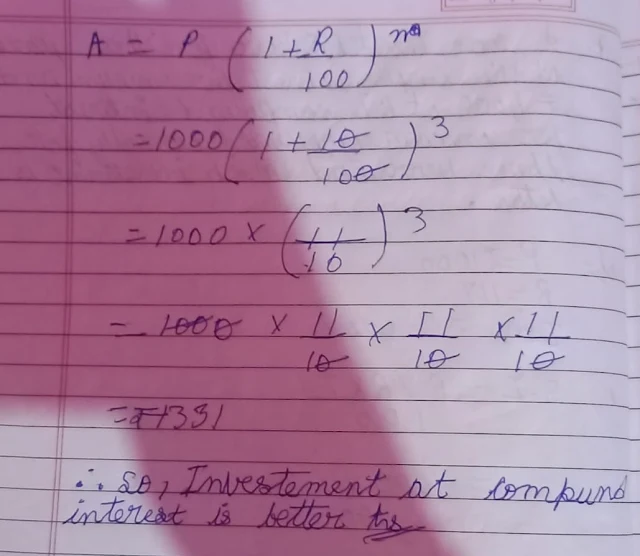 A = P (1 + R/100)^n
= 1000 (1 + 10/100)^3
= 1000 × (11/10)^3
= 1000 × 11/10 × 11/10 × 11/10
= ₹1331
∴ SO, Investement at compund
interest is better